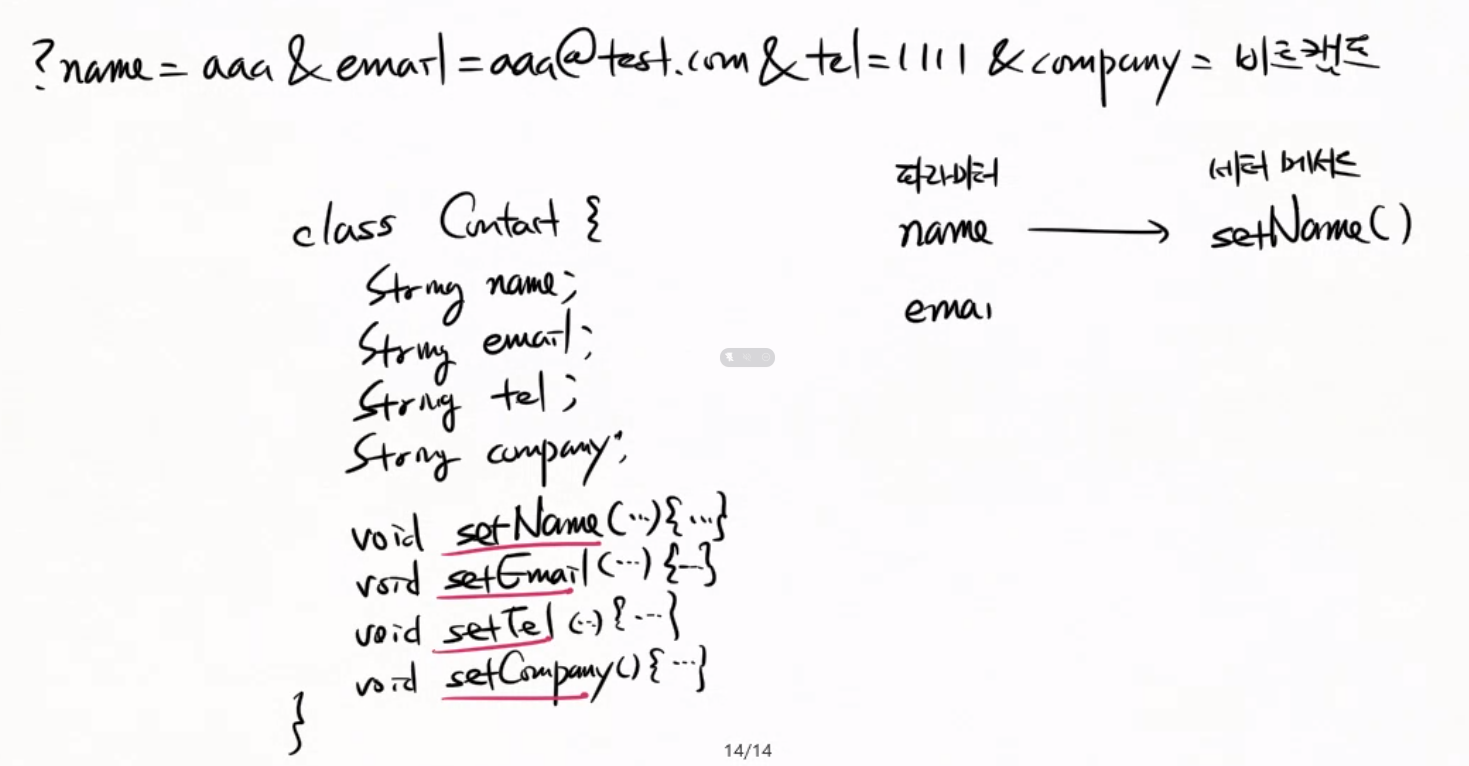 ?name=aaa&email=aaa@test.com&tel=1111&company=비트캠프
class Contact {
String name;
String email;
String tel;
String company;
void setName(...){...}
void setEmail(...){...}
void setTel(..){...}
void setCompany(){...}
}
파라미터 세터 메서드
name → setName()
emai
14/14